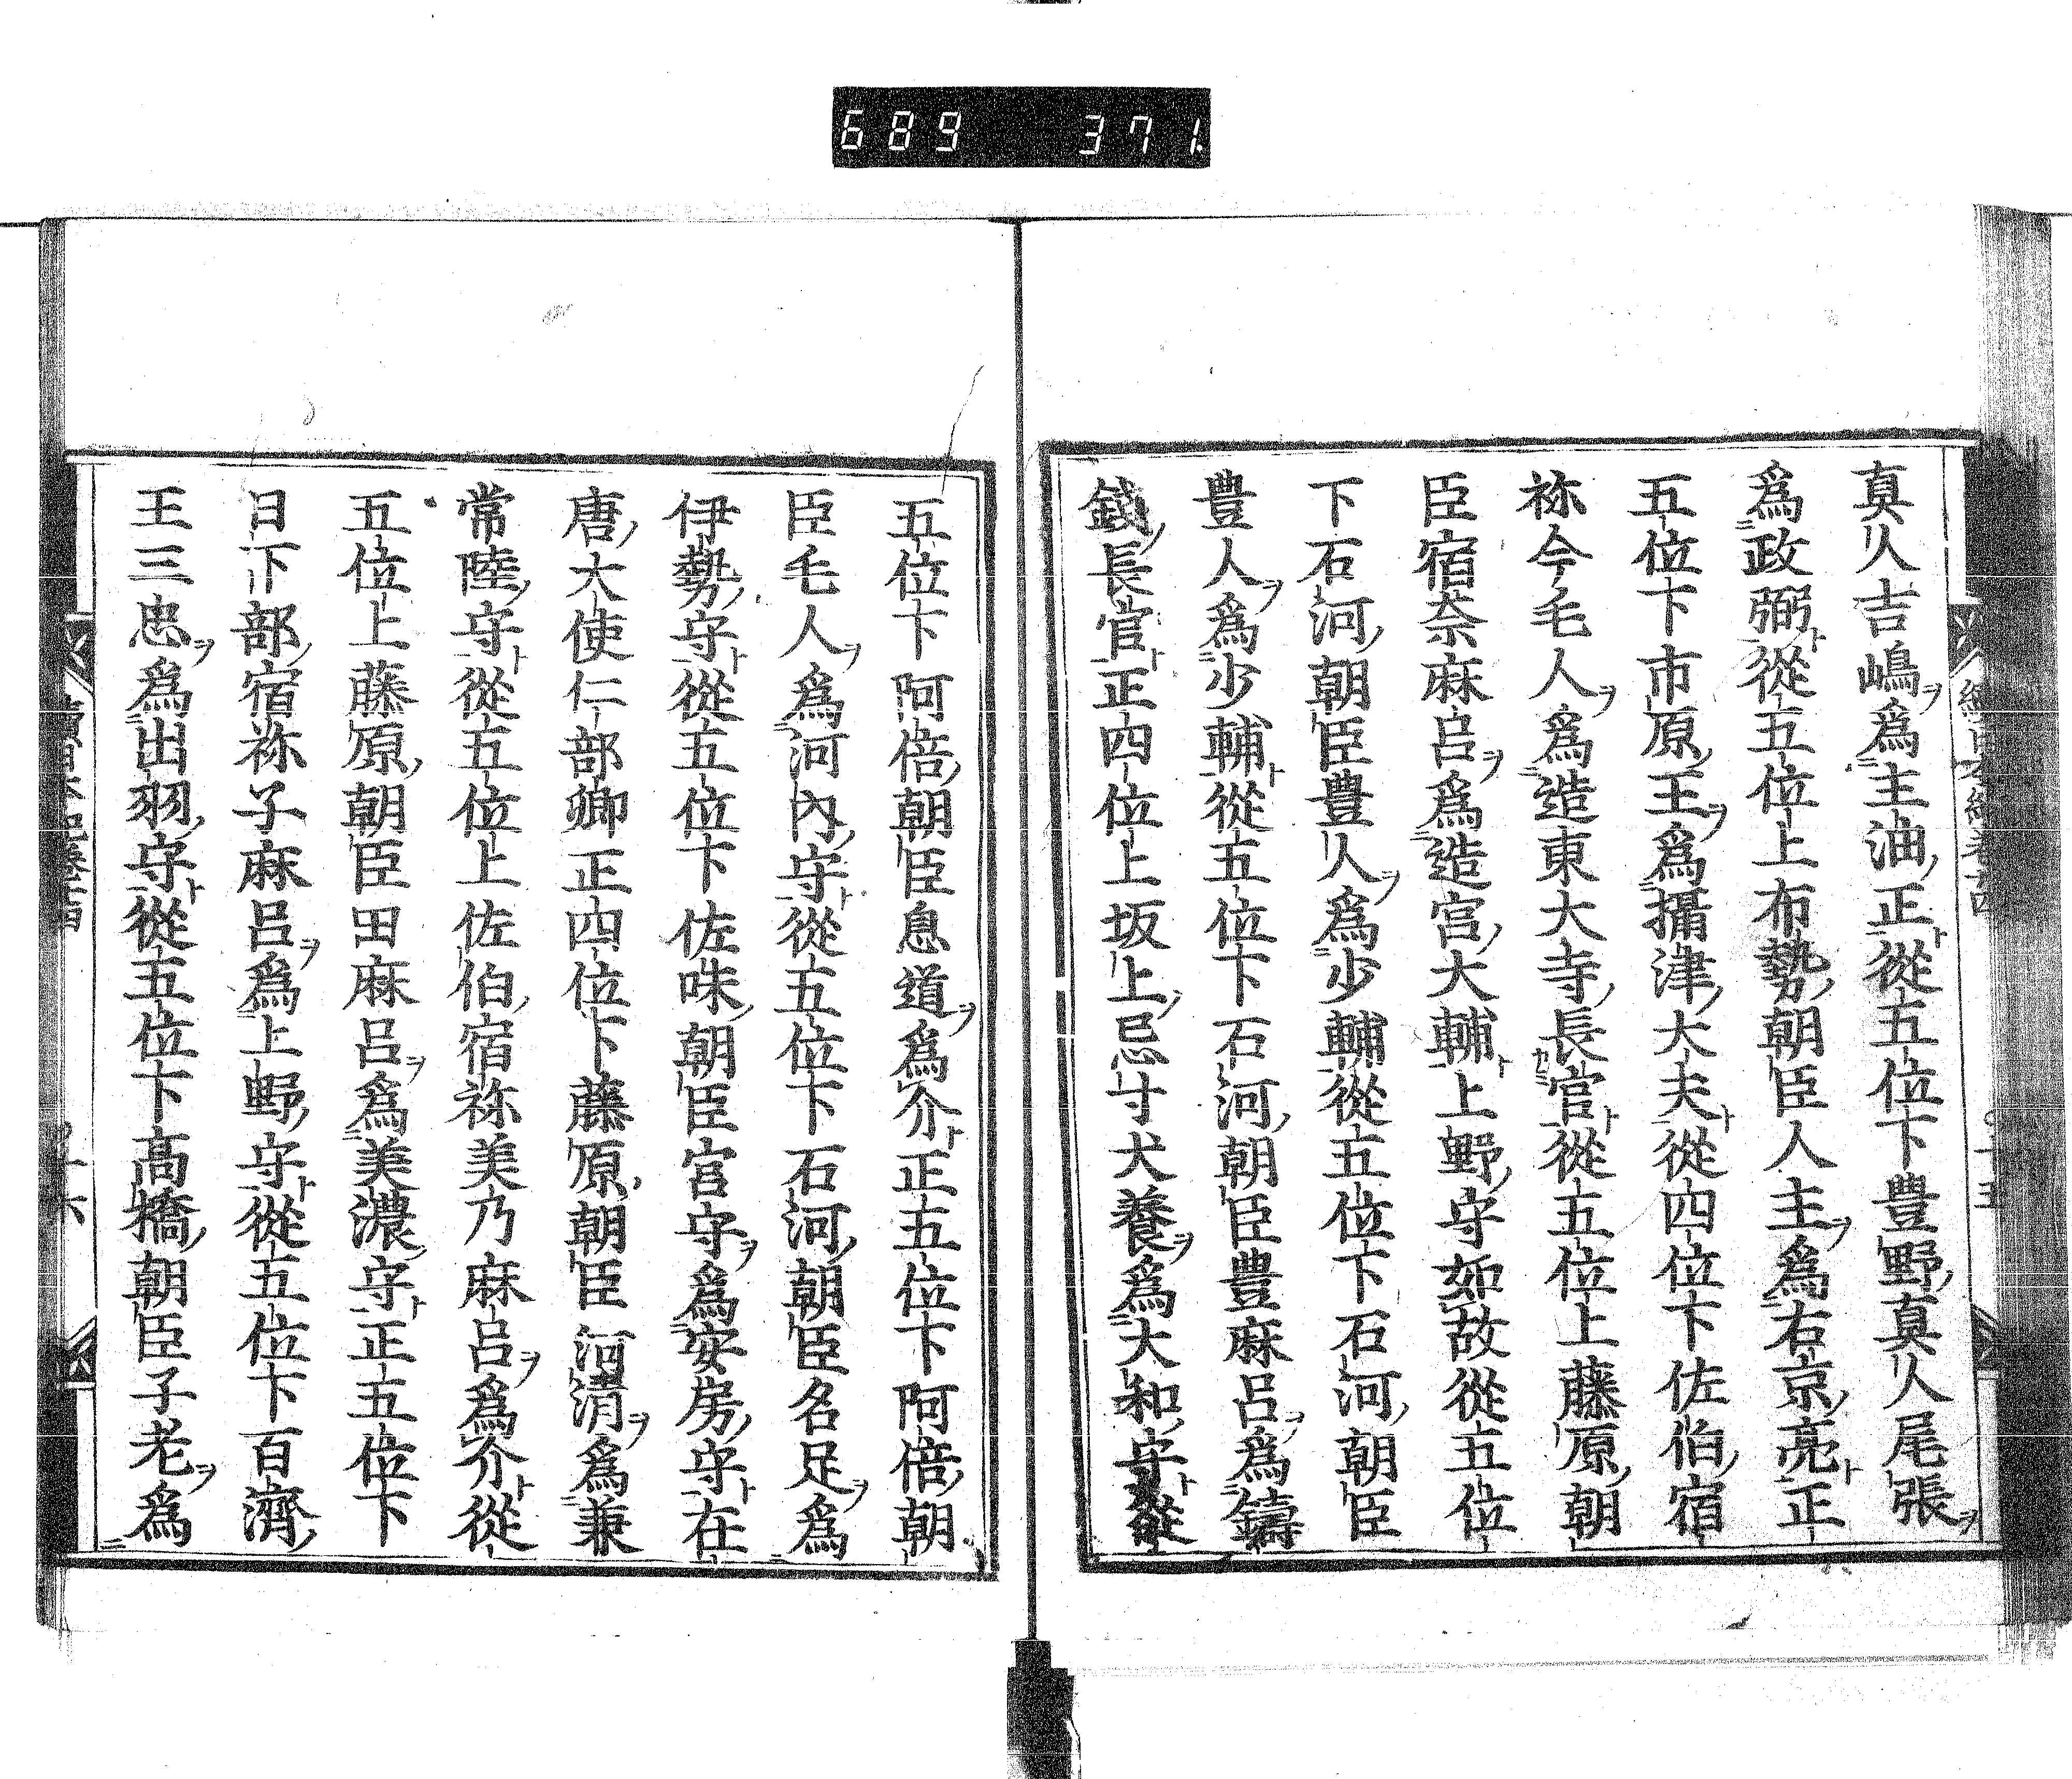 689 371
真人吉嶋ヲ爲主油正ト從五位下豊野真人尾張ヲ
爲政弼ト從五位上布勢朝臣人主ヲ爲右京亮ト正
五位下市原王ヲ爲攝津大夫ト從四位下佐伯宿
祢今毛人ヲ爲造東大寺長官ト從五位上藤原朝
臣宿奈麻呂ヲ爲造宮大輔ト上野守如故從五位
下石河朝臣豊人ヲ爲少輔從五位下石河朝臣
豊人ヲ爲少輔ト從五位下石河朝臣豊麻呂ヲ爲鑄
錢長官ト正四位上坂上忌寸犬養ヲ爲大和守ト從
五位下阿倍朝臣息道ヲ爲介ト正五位下阿倍朝
臣毛人ヲ爲河內守ト從五位下石河朝臣名足ヲ爲
伊勢守ト從五位下佐味朝臣宮守ヲ爲安房守ト在
唐大使仁部卿正四位下藤原朝臣河清ヲ爲兼
常陸守ト從五位上佐伯宿祢美乃麻呂ヲ爲介ト從
五位上藤原朝臣田麻呂ヲ爲美濃守ト正五位下
日下部宿祢子麻呂ヲ爲上野守ト從五位下百濟
王三忠ヲ爲出羽守ト從五位下高橋朝臣子老ヲ爲
十六